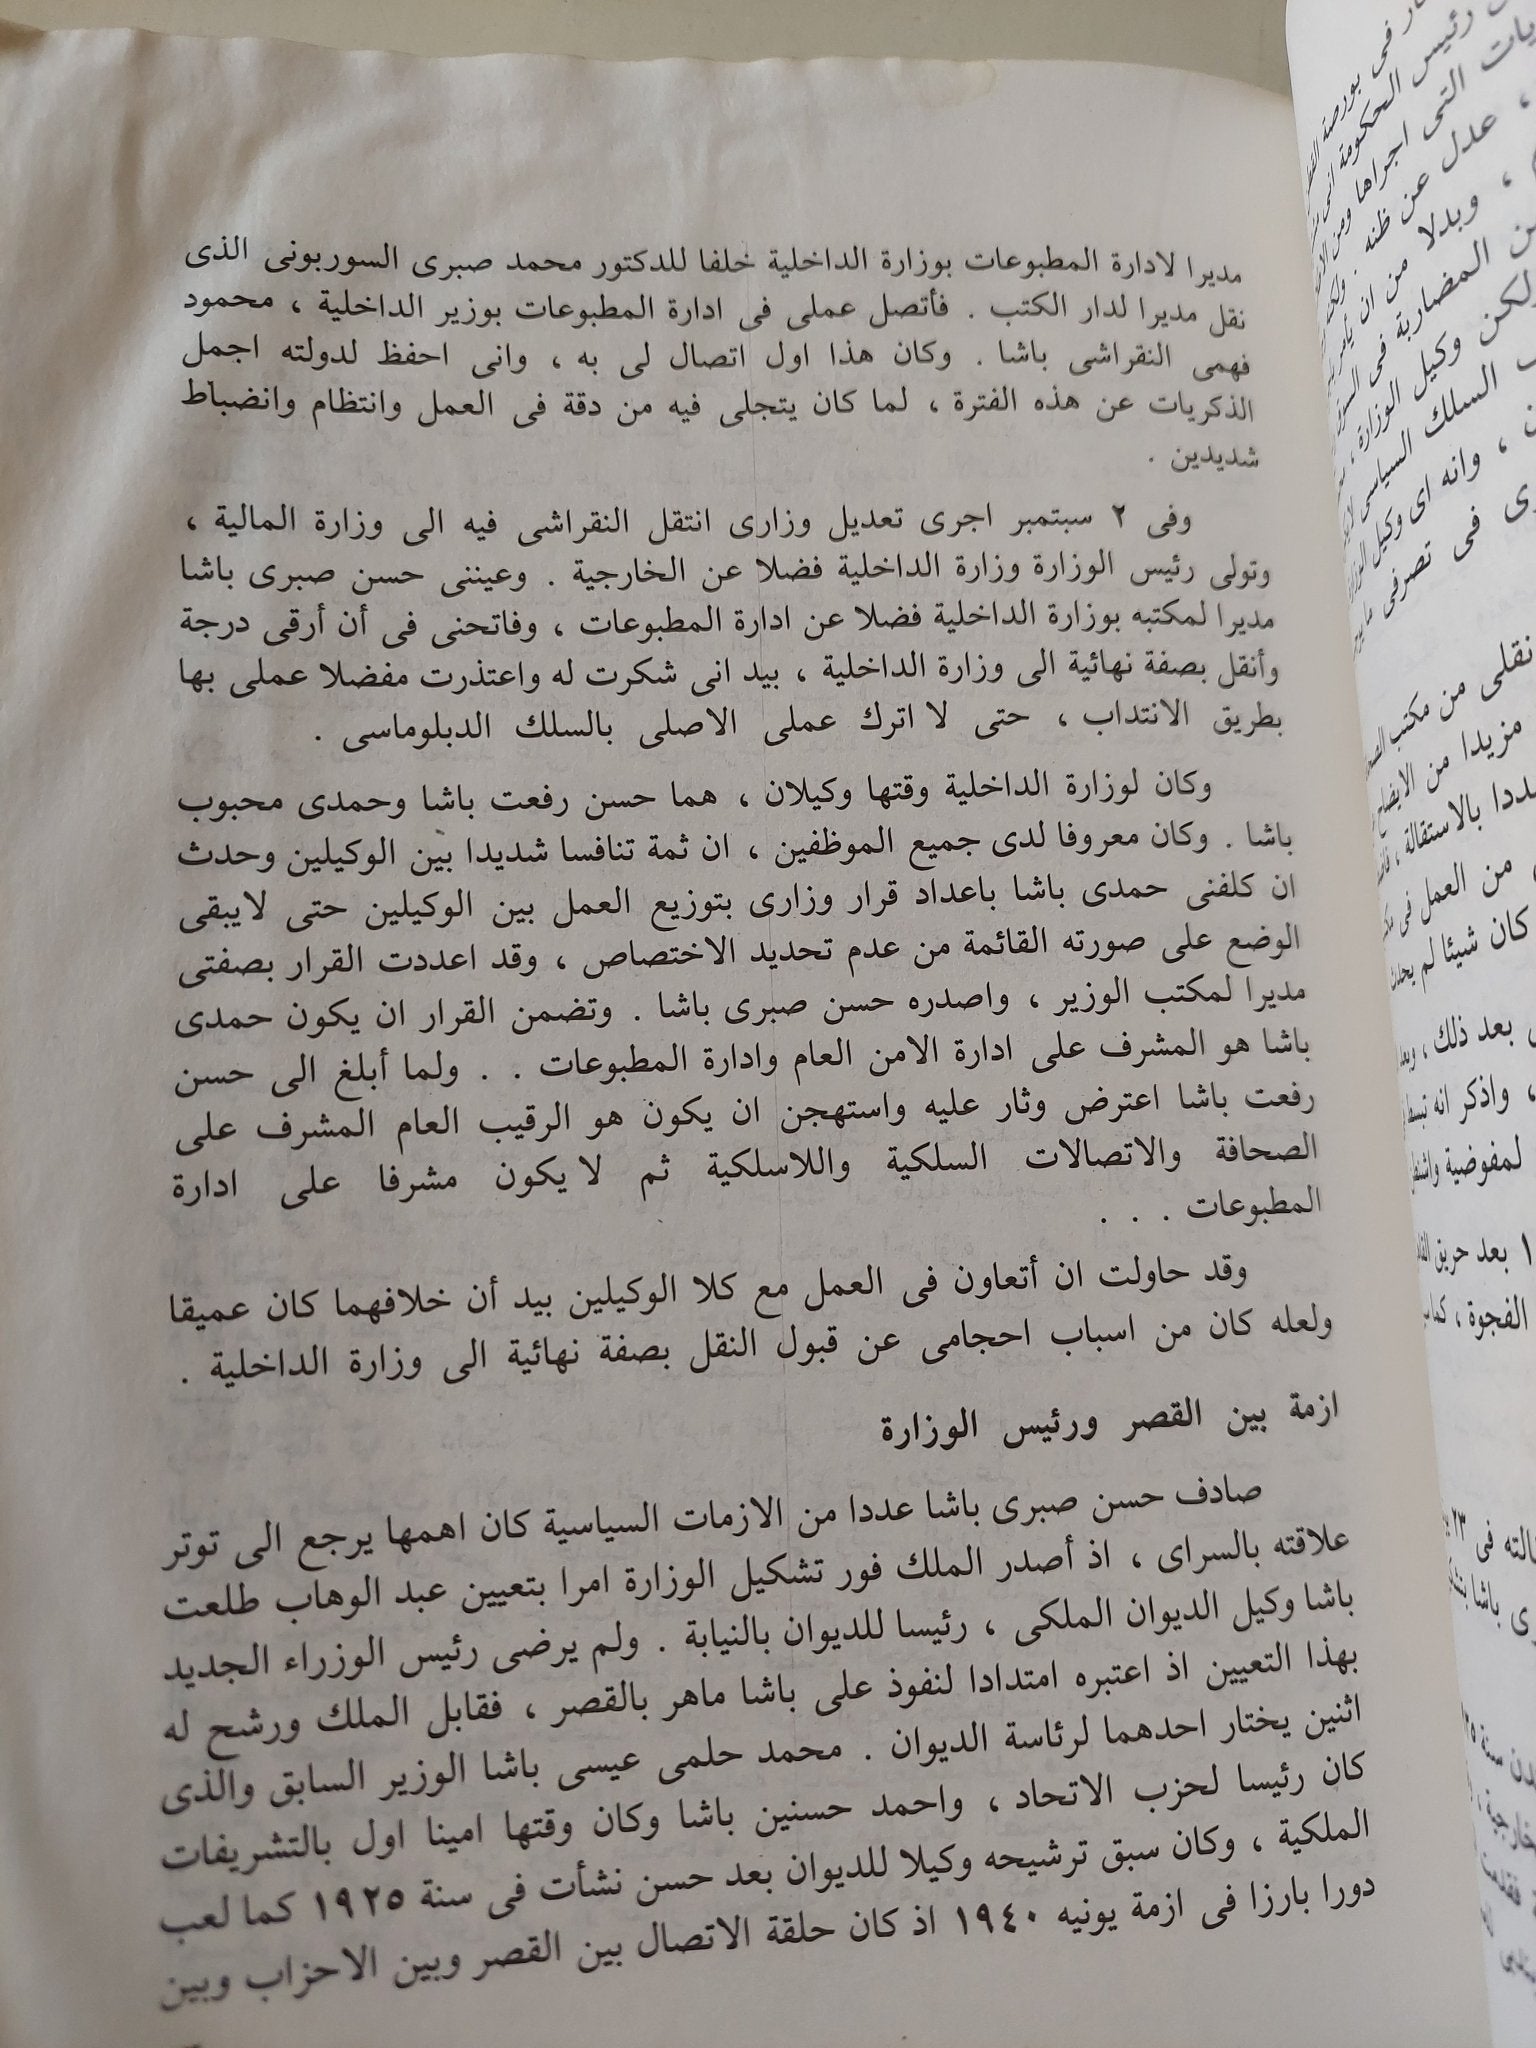 مديرا لادارة المطبوعات بوزارة الداخلية خلفا للدكتور محمد صبرى السوربونى الذى
نقل مديرا لدار الكتب . فأتصل عملى فى ادارة المطبوعات بوزير الداخلية ، محمود
فهمى النقراشى باشا . وكان هذا اول اتصال لى به ، وانى احفظ لدولته اجمل
الذكريات عن هذه الفترة ، لما كان يتجلى فيه من دقة فى العمل وانتظام وانضباط
شديدين .
وفى ٢ سبتمبر اجرى تعديل وزارى انتقل النقراشى فيه الى وزارة المالية ،
وتولى رئيس الوزارة وزارة الداخلية فضلا عن الخارجية . وعيننى حسن صبرى باشا
مديرا لمكتبه بوزارة الداخلية فضلا عن ادارة المطبوعات ، وفاتحنى فى أن أرقى درجة
وأنقل بصفة نهائية الى وزارة الداخلية ، بيد انى شكرت له واعتذرت مفضلا عملى بها
بطريق الانتداب ، حتى لا اترك عملى الاصلى بالسلك الدبلوماسى .
وكان لوزارة الداخلية وقتها وكيلان ، هما حسن رفعت باشا وحمدى محبوب
باشا . وكان معروفا لدى جميع الموظفين ، ان ثمة تنافسا شديدا بين الوكيلين وحدث
ان كلفنى حمدى باشا باعداد قرار وزارى بتوزيع العمل بين الوكيلين حتى لايبقى
الوضع على صورته القائمة من عدم تحديد الاختصاص ، وقد اعددت القرار بصفتى
مديرا لمكتب الوزير ، واصدره حسن صبرى باشا . وتضمن القرار ان يكون حمدى
باشا هو المشرف على ادارة الامن العام وادارة المطبوعات . . ولما أبلغ الى حسن
رفعت باشا اعترض وثار عليه واستهجن ان يكون هو الرقيب العام المشرف على
الصحافة والاتصالات السلكية واللاسلكية ثم لايكون مشرفا على ادارة
المطبوعات . . .
وقد حاولت ان أتعاون فى العمل مع كلا الوكيلين بيد أن خلافهما كان عميقا
ولعله كان من اسباب احجامى عن قبول النقل بصفة نهائية الى وزارة الداخلية .
ازمة بين القصر ورئيس الوزارة
صادف حسن صبرى باشا عددا من الازمات السياسية كان اهمها يرجع الى توتر
علاقته بالسراى ، اذ أصدر الملك فور تشكيل الوزارة امرا بتعيين عبد الوهاب طلعت
باشا وكيل الديوان الملكى ، رئيسا للديوان بالنيابة . ولم يرضى رئيس الوزراء الجديد
بهذا التعيين اذ اعتبره امتدادا لنفوذ على باشا ماهر بالقصر ، فقابل الملك ورشح له
اثنين يختار احدهما لرئاسة الديوان . محمد حلمى عيسى باشا الوزير السابق والذى
كان رئيسا لحزب الاتحاد ، واحمد حسنين باشا وكان وقتها امينا اول بالتشريفات
الملكية ، وكان سبق ترشيحه وكيلا للديوان بعد حسن نشأت فى سنة ١٩٢٥ كما لعب
دورا بارزا فى ازمة يونيه ١٩٤٠ اذ كان حلقة الاتصال بين القصر وبين الاحزاب وبين